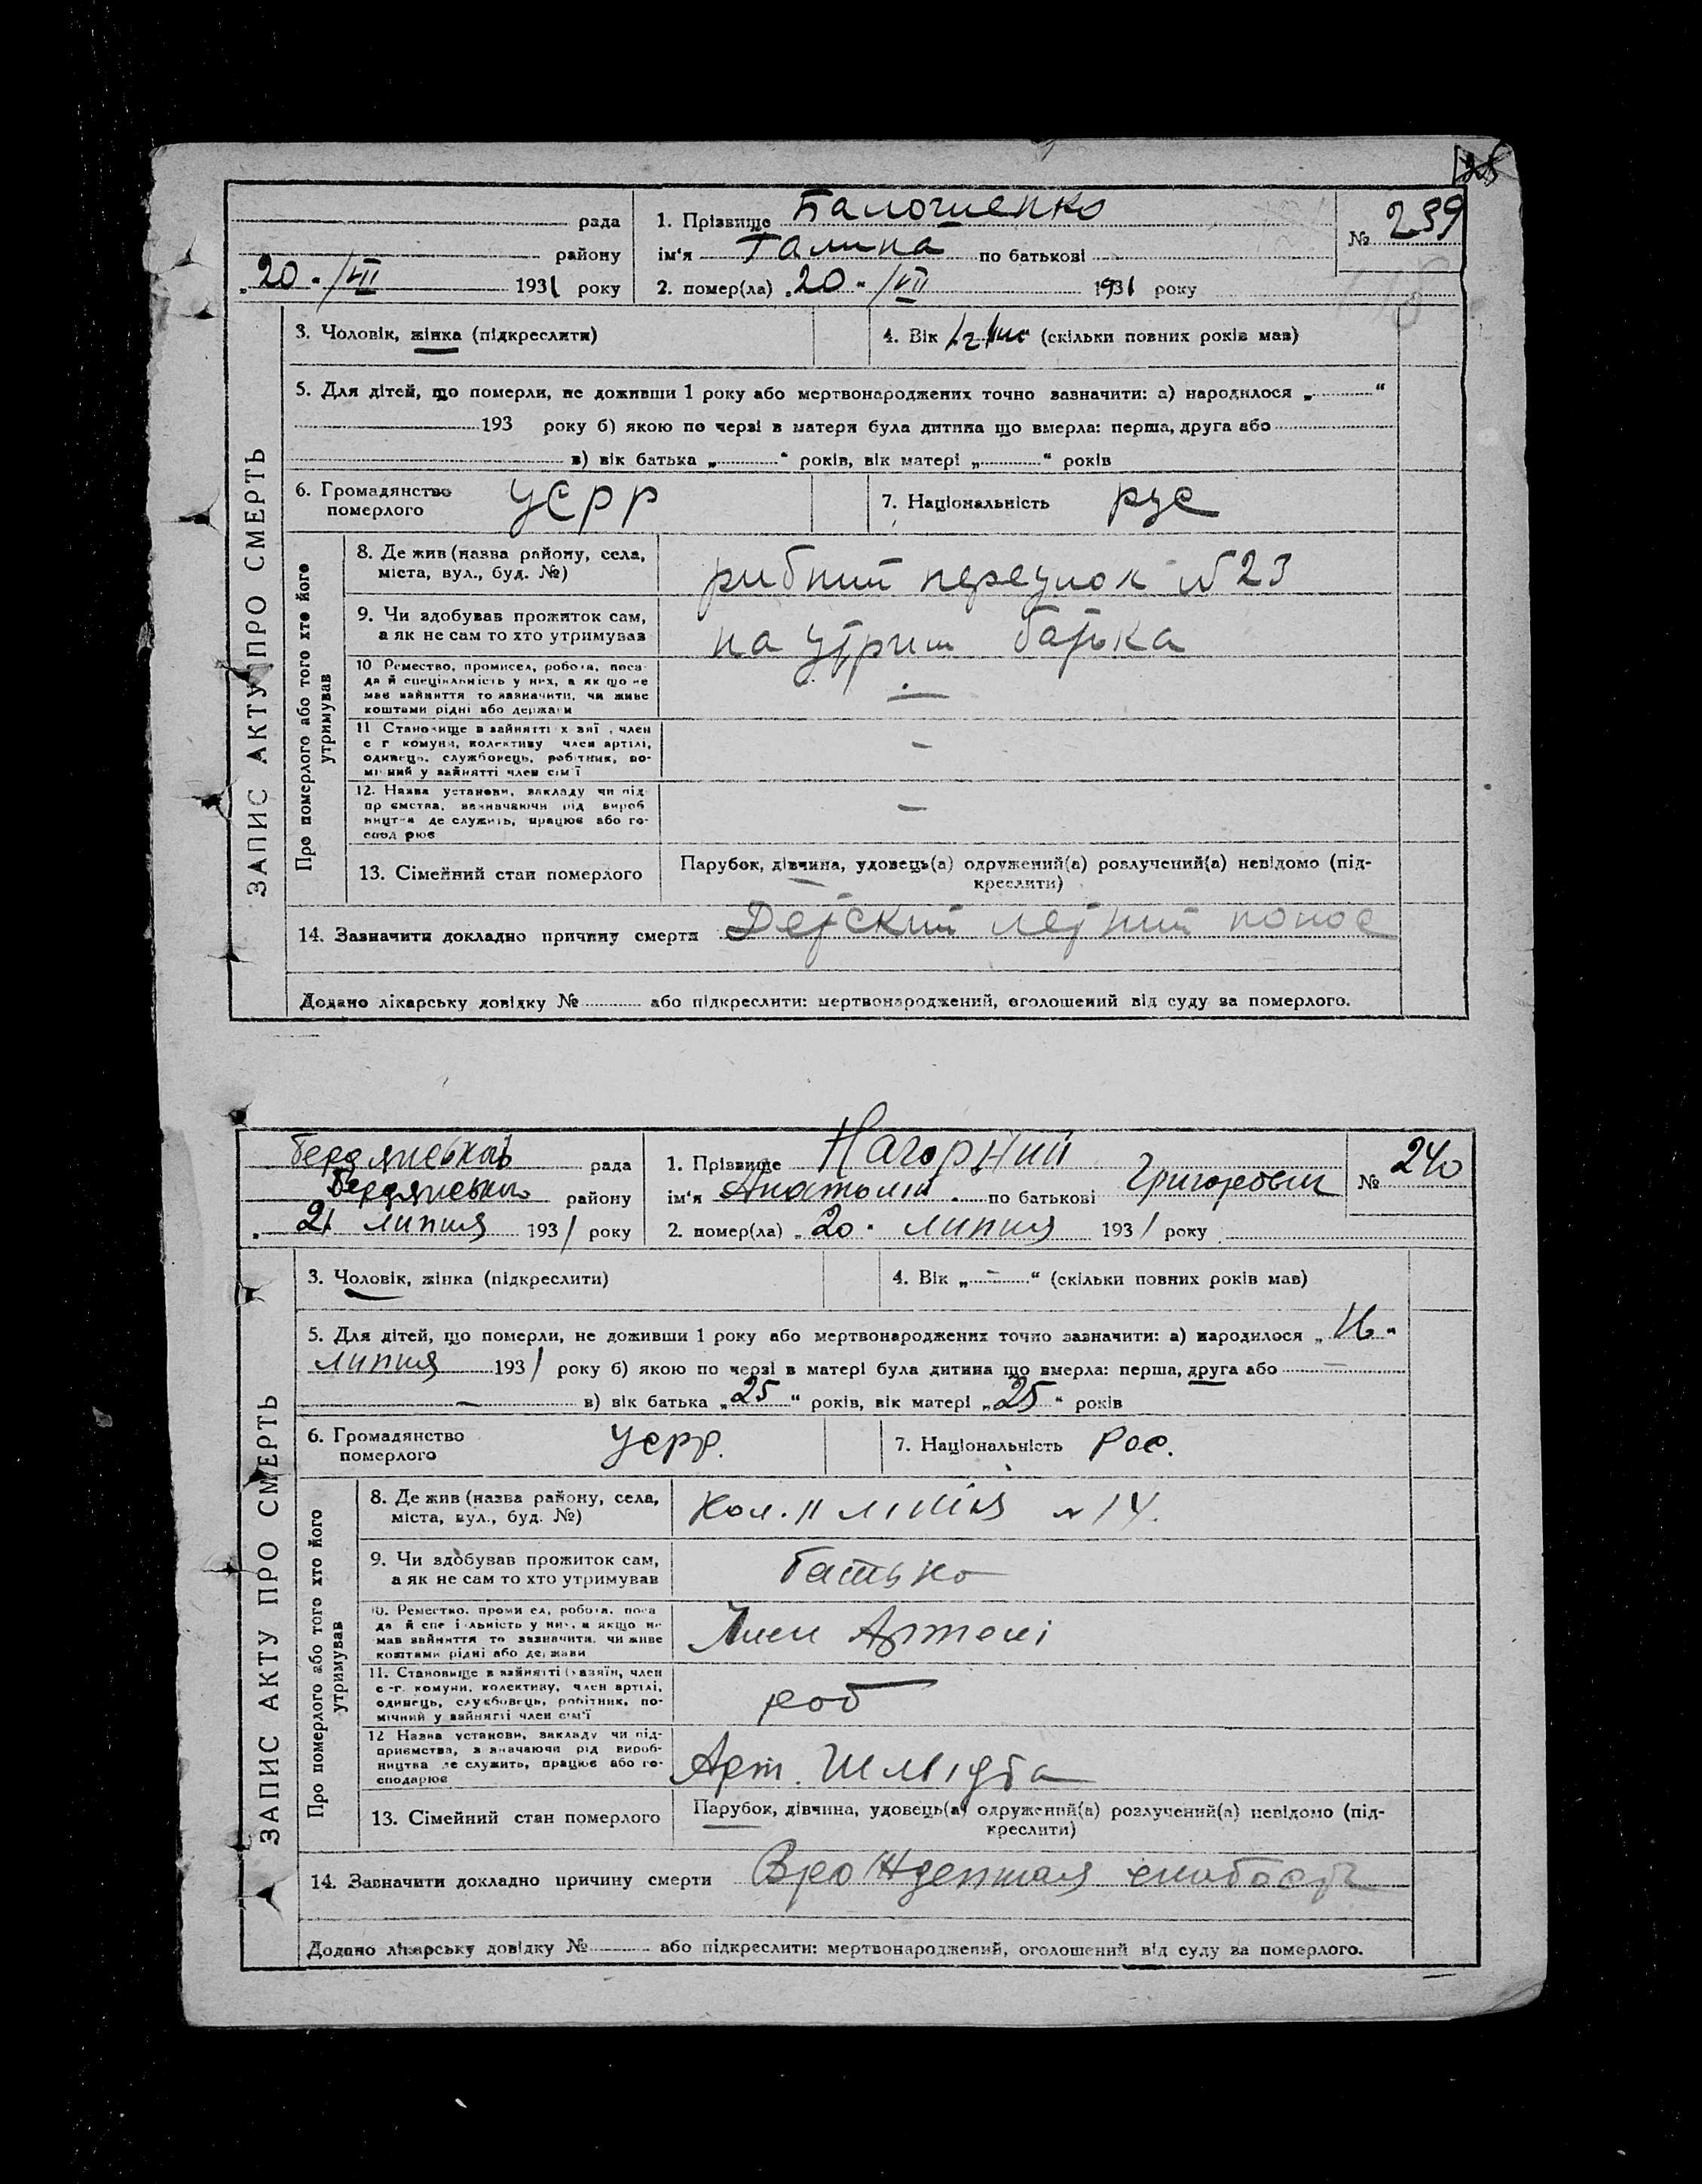 239
рада
1. Прізвище Балошенко
№
району
ім'я Галина по батькові
„20 "/VII 1931 року
2. помер(ла) „20 "/VII 1931 року
3. Чоловік, жінка (підкреслити)
4. Вік (скільки повних років мав)
5. Для дітей, що померли, не доживши 1 року або мертвонароджених точно зазначити: а) народилося „ “
193 року б) якою по черзі в матери була дитина що вмерла: перша, друга або
в) вік батька „ “ років, вік матері „ “ років
6. Громадянство
померлого
УСРР
7. Національність рус
ЗАПИС АКТУ ПРО СМЕРТЬ
Про померлого або того хто його
утримував
8. Де жив (назва району, села,
міста, вул., буд. №)
рибний переулок №23
9. Чи здобував прожиток сам,
а як не сам то хто утримував
на утрим батька
10 Ремество, промисел, робота, поса-
да й спеціяльність у них, а як що не
мав зайняття то зазначити, чи живе
коштами рідні або держави
—
11 Становище в зайнятті х зяї , член
с г комуни, колективу член артілі,
одинець, службовець, робітник, по-
мічний у зайнятті член сім'ї
-
12. Назва установи, закладу чи під-
пр ємства, зазначаючи рід вироб
ництва де служить, працює або го-
спод рює
-
13. Сімейний стан померлого
Парубок, дівчина, удовець(а) одружений(а) розлучений(а) невідомо (під-
креслити)
14. Зазначити докладно причину смерти Детский летний понос
Додано лікарську довідку № або підкреслити: мертвонароджений, оголошений від суду за померлого.
Бердянська рада
1. Прізвище Нагорний
№ 240
Бердянського району
ім'я Анатолій по батькові Григоревич
„ 21 липня 1931 року
2. помер(ла) „20" липня 1931 року
3. Чоловік, жінка (підкреслити)
4. Вік „ - “ (скільки повних років мав)
5. Для дітей, що померли, не доживши 1 року або мертвонароджених точно зазначити: а) народилося „16“
липня 1931 року б) якою по черзі в матері була дитина що вмерла: перша, друга або —
— в) вік батька „25“ років, вік матері „25“ років
6. Громадянство
померлого
УСРР.
7. Національність Рос.
ЗАПИС АКТУ ПРО СМЕРТЬ
Про померлого або того хто його
утримував
8. Де жив (назва району, села,
міста, вул., буд. №)
Кол. 11 лінія №14.
9. Чи здобував прожиток сам,
а як не сам то хто утримував
батько
10. Ремество, проми ел, робота, поса
да й спе і льність у них, а якщо не
мав зайняття то зазначити, чи живе
коштами рідні або держави
Член Артелі
11. Становище в зайнятті (хазяїн, член
с-г. комуни, колективу, член артілі,
одинець, службовець, робітник, по-
мічний у зайнятті член сім'ї
роб
12 Назва установи, закладу чи під-
приємства, зазначаючи рід вироб-
ництва де служить, працює або го-
сподарює
Арт. Шмідта
13. Сімейний стан померлого
Парубок, дівчина, удовець(а) одружений(а) розлучений(а) невідомо (під-
креслити)
14. Зазначити докладно причину смерти Врожденная слабость
Додано лікарську довідку № або підкреслити: мертвонароджений, оголошений від суду за померлого.